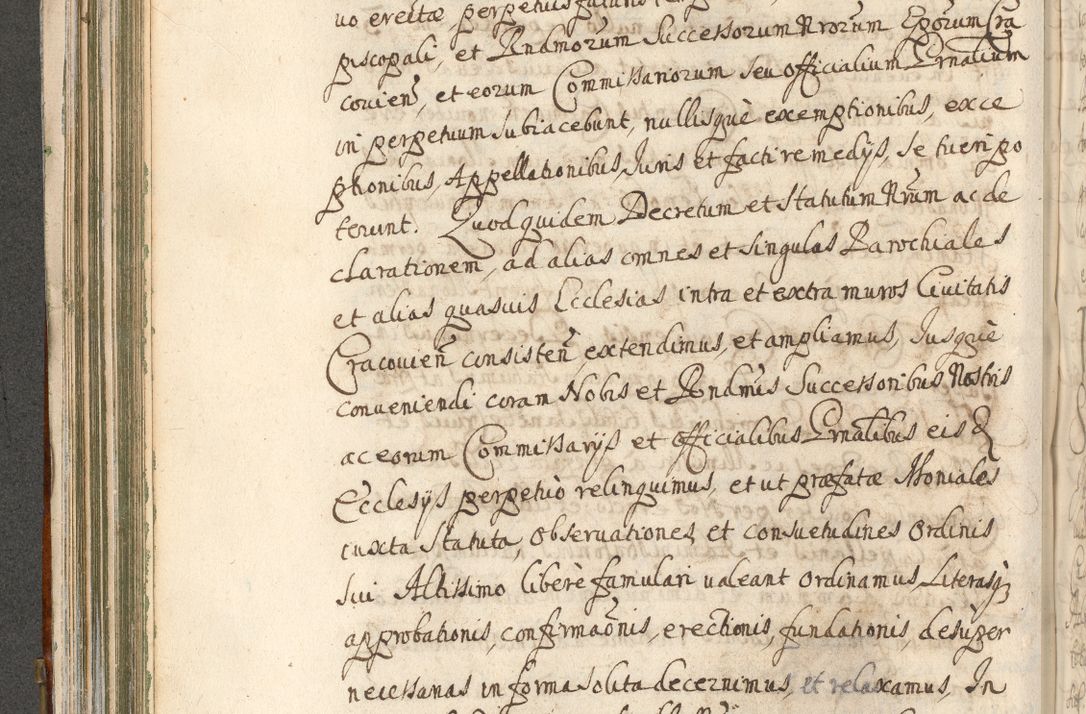 uo erectæ perpetuis
piscopali, et Rndmorum Successorum Nrorum Eporum Cra
covien, et eorum Commissariorum seu officialium Grnalium
in perpetuum subiacebunt, nullisquè exemptionibus, exce
ptionibus, Appellationibus, Iuris et facti remedijs, se tueri po
terunt. Quod quidem Decretum et Statutum Nrum ac de
clarationem, ad alias omnes et singulas Parochiales
et alias quasuis Ecclesias intra et extra muros Ciuitatis
Cracouien consisten extendimus, et ampliamus, Iusquè
conueniendi coram Nobis et Rndmis Successoribus Nostris
ac eorum Commissarijs et officialibus Grnalibus eis &
Ecclesijs perpetuò relinquimus, et ut præfatæ Moniales
iuxta Statuta, observationes, et consuetudines ordinis
sui Altissimo liberè famulari ualeant ordinamus, Literasq;
approbationis, confirmaonis, erectionis, fundationis, desuper
necessarias in forma solita decernimus, et relaxamus, In